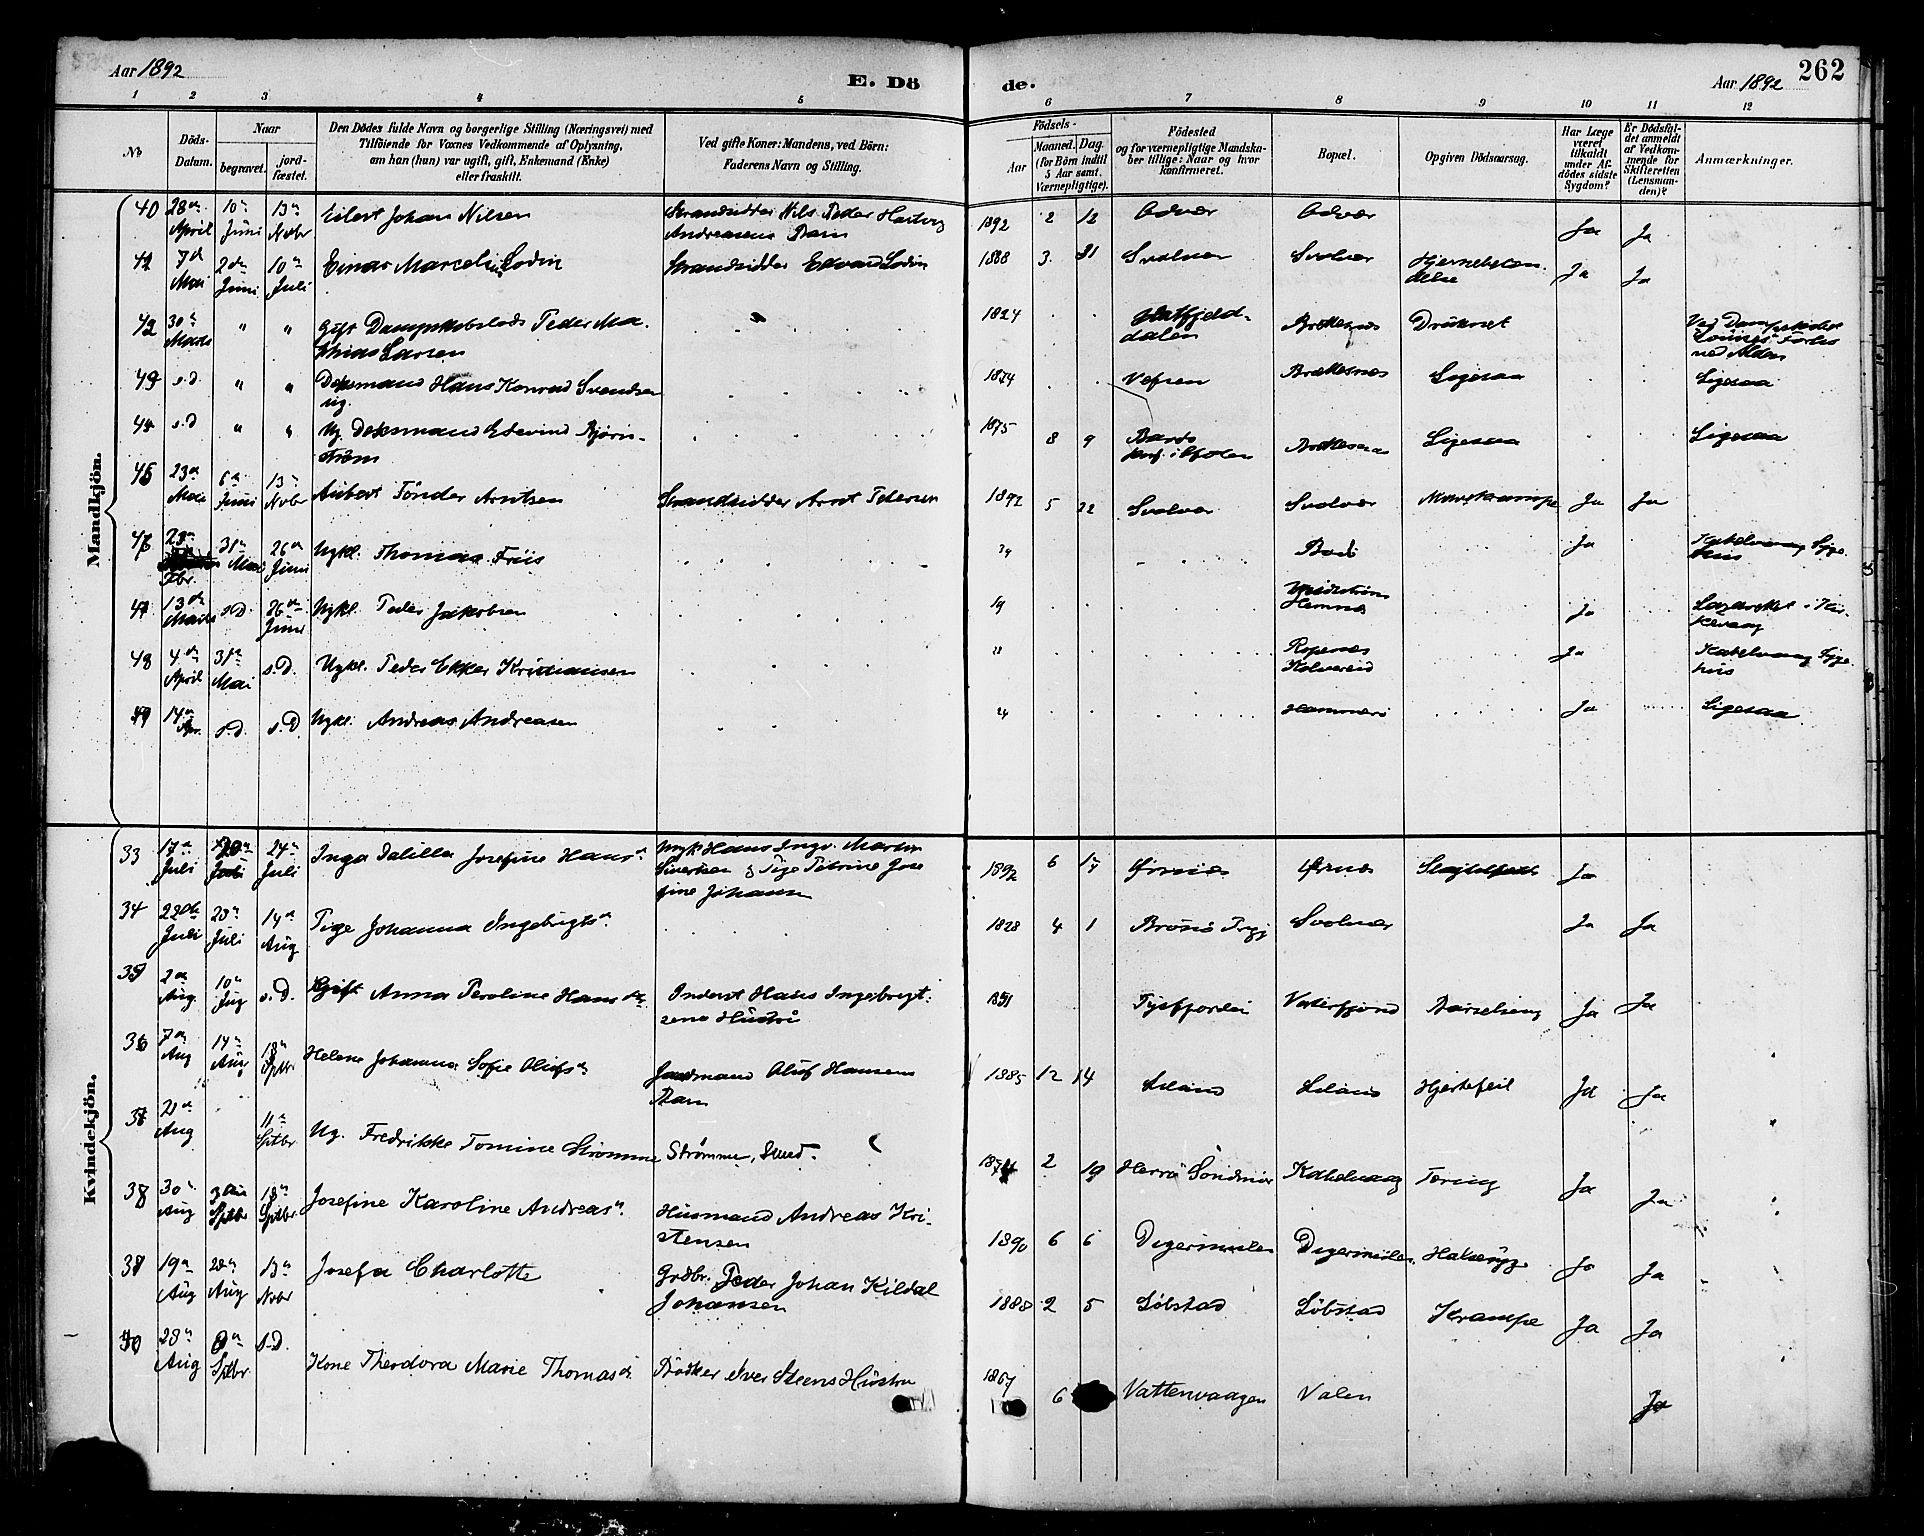 Aar 1892
E. Dö
de.
Aar 1892
262
1 2 3 4 5 6 7 8 9 10 11 12
No
Döds-
Datum.
Naar
begravet.
jord-
fæstet.
Den Dödes fulde Navn og borgerlige Stilling (Næringsvei) med
Tilföiende for Voxnes Vedkommende af Oplysning,
om han (hun) var ugift, gift, Enkemand (Enke)
eller fraskilt.
Ved gifte Koner: Mandens, ved Börn:
Faderens Navn og Stilling.
Födsels-
Aar
Maaned. Dag.
(for Börn indtil
5 Aar samt
Værnepligtige).
Födested
og for værnepligtige Mandska-
ber tillige: Naar og hvor
konfirmeret.
Bopæl.
Opgiven Dödsaarsag.
Har Læge
været
tilkaldt
under Af-
dödes sidste
Sygdom?
Er Dödsfal-
det anmeldt
af Vedkom-
mende for
Skifteretten
(Lensman-
den)?
Anmærkninger.
Mandkjön.
40 28de April 10de Juni 13de Novbr Eilert Johan Nilsen Strandsidder Nils Peder Hartvig
Andreasens Barn 1892 2 12 Ja Ja
41 7de Mai 2den Juni 10de Juli Einar Marcelius Lodin Strandsidder Edvard Lodin 1888 3 31 Svolvær Svolvær Hjernebetæn-
delse Ja Ja
42 30te Marts " " Gift Dampskibslods Peder Ma-
thias Larsen 1824 Hatfjeld-
dalen Brettesnes Druknet
43 s.D. " " Dæksmand Hans Konrad Svendsen
ug. 1874 Vefsen Brettesnes Ligesaa Ligesaa
44 s.D " " Ug. Dæksmand Edevind Bjørn-
strøm 1875 8 9 Brettesnes Ligesaa Ligesaa
45 23de Mai 6te Juni 13de Novbr Aubert Tönder Arntsen Strandsidder Arnt Petersen 1892 5 22 Svolvær Svolvær Mavekrampe Ja Ja
23de Fbr. 31te Mai 26de Juni Ugkl. Thomas Friis 24 Bodö Ja Kabelvaag Syge-
hus
47 13de Marts s.D. 26de Juni Ugkl. Peder Jakobsen 19 Hemnes Ja
48 4de April 31te Mai s.D. Ugkl. Peder Ekker Kristiansen Kolvereid Ja Kabelvaag Syge-
hus
49 14de Apr. s.D. s.D. Ugkl. Andreas Andreasen 24 Hammerö Ja Ligesaa
Kvindekjön.
33 17de Juli 24de Juli Inga Dalilla Josefine Hansd. Ungk. Hans Ingv. Martin
Sivertsen & Pige Petrine Jose-
fine Johansen 1892 6 Ja
34 22de Juli 23de Juli 14de Aug Pige Johanna Ingebrigtsd. 1828 4 1 Svolvær Ja Ja
35 2de Aug 10de Aug s.D. Gift Anna Peroline Hansdr. Inderst Hans Ingebrigt-
sens Hustru 1851 Tysfjorden Vaterfjord Barselseng Ja Ja
36 7de Aug 14de Aug 18de Sptbr Helene Johanna Sofie Olufsd. Jordmand Oluf Hansens
Barn 1885 12 14 Hjertefeil Ja Ja
37 21de Aug 11te Sptbr Ug. Fredrikke Tomine Strømme Strømme, Smed. 2 19 Herrö Söndmör Kabelvaag Tæring Ja Ja
38 30te Aug Sptbr 18de Sptbr. Josefine Karoline Andreasd. Husmand Andreas Kri-
stensen 1890 6 6 Digermulen Digermulen Halssyge Ja Ja
19de Aug 28de Aug 13de Novbr Josefa Charlotte Grdbr. Peder Johan Kildal
Johansen 1888 2 5 Löbstad Löbstad Krampe Ja Ja
40 28de Aug Sptbr. s.D. Kone Theodora Marie Thomasd. Bödker Iver Steens Hustru 1867 6 Vattenvaagen Valen Ja